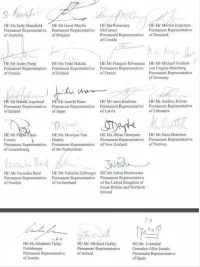 HE Ms Sally Mansfield
Permanent Representative
of Australia
HE Mr Geert Muylle
Permanent Representative
of Belgium
HE Ms Rosemary
McCarney
Permanent Representative
of Canada
HE Mr Morten Jespersen
Permanent Representative
of Denmark
HE Mr Andre Pung
Permanent Representative
of Estonia
HE Ms Terhi Hakala
Permanent Representative
of Finland
HE Mr François Rivasseau
Permanent Representative
of France
HE Mr Michael Freiherr
von Ungern-Sternberg
Permanent Representative
of Germany
HE Mr Harald Aspelund
Permanent Representative
of Iceland
HE Mr
Permanent Representative
of Japan
HE Mr Janis Karklins
Permanent Representative
of Latvia
HE Mr Andrius Krivas
Permanent Representative
of Lithuania
HE Mr
Permanent Representative
of Luxembourg
HE Ms Monique Van
Permanent Representative
of the Netherlands
HE Ms Jillian Dempster
Permanent Representative
of New Zealand
HE Mr Hans Brattskar
Permanent Representative
of Norway
HE Ms Veronika Bard
Permanent Representative
of Sweden
HE Mr Valentin Zellweger
Permanent Representative
of Switzerland
HE Mr Julian Braithwaite
Permanent Representative
of the United Kingdom of
Great Britain and Northern
Ireland
HE Ms Elisabeth Tichy-
Fisslberger
Permanent Representative
of Austria
HE Mr Michael Gaffey
Permanent Representative
of Ireland
HE Mr. Cristobal
Gonzalez-Aller Jurado
Permanent Representative
of Spain